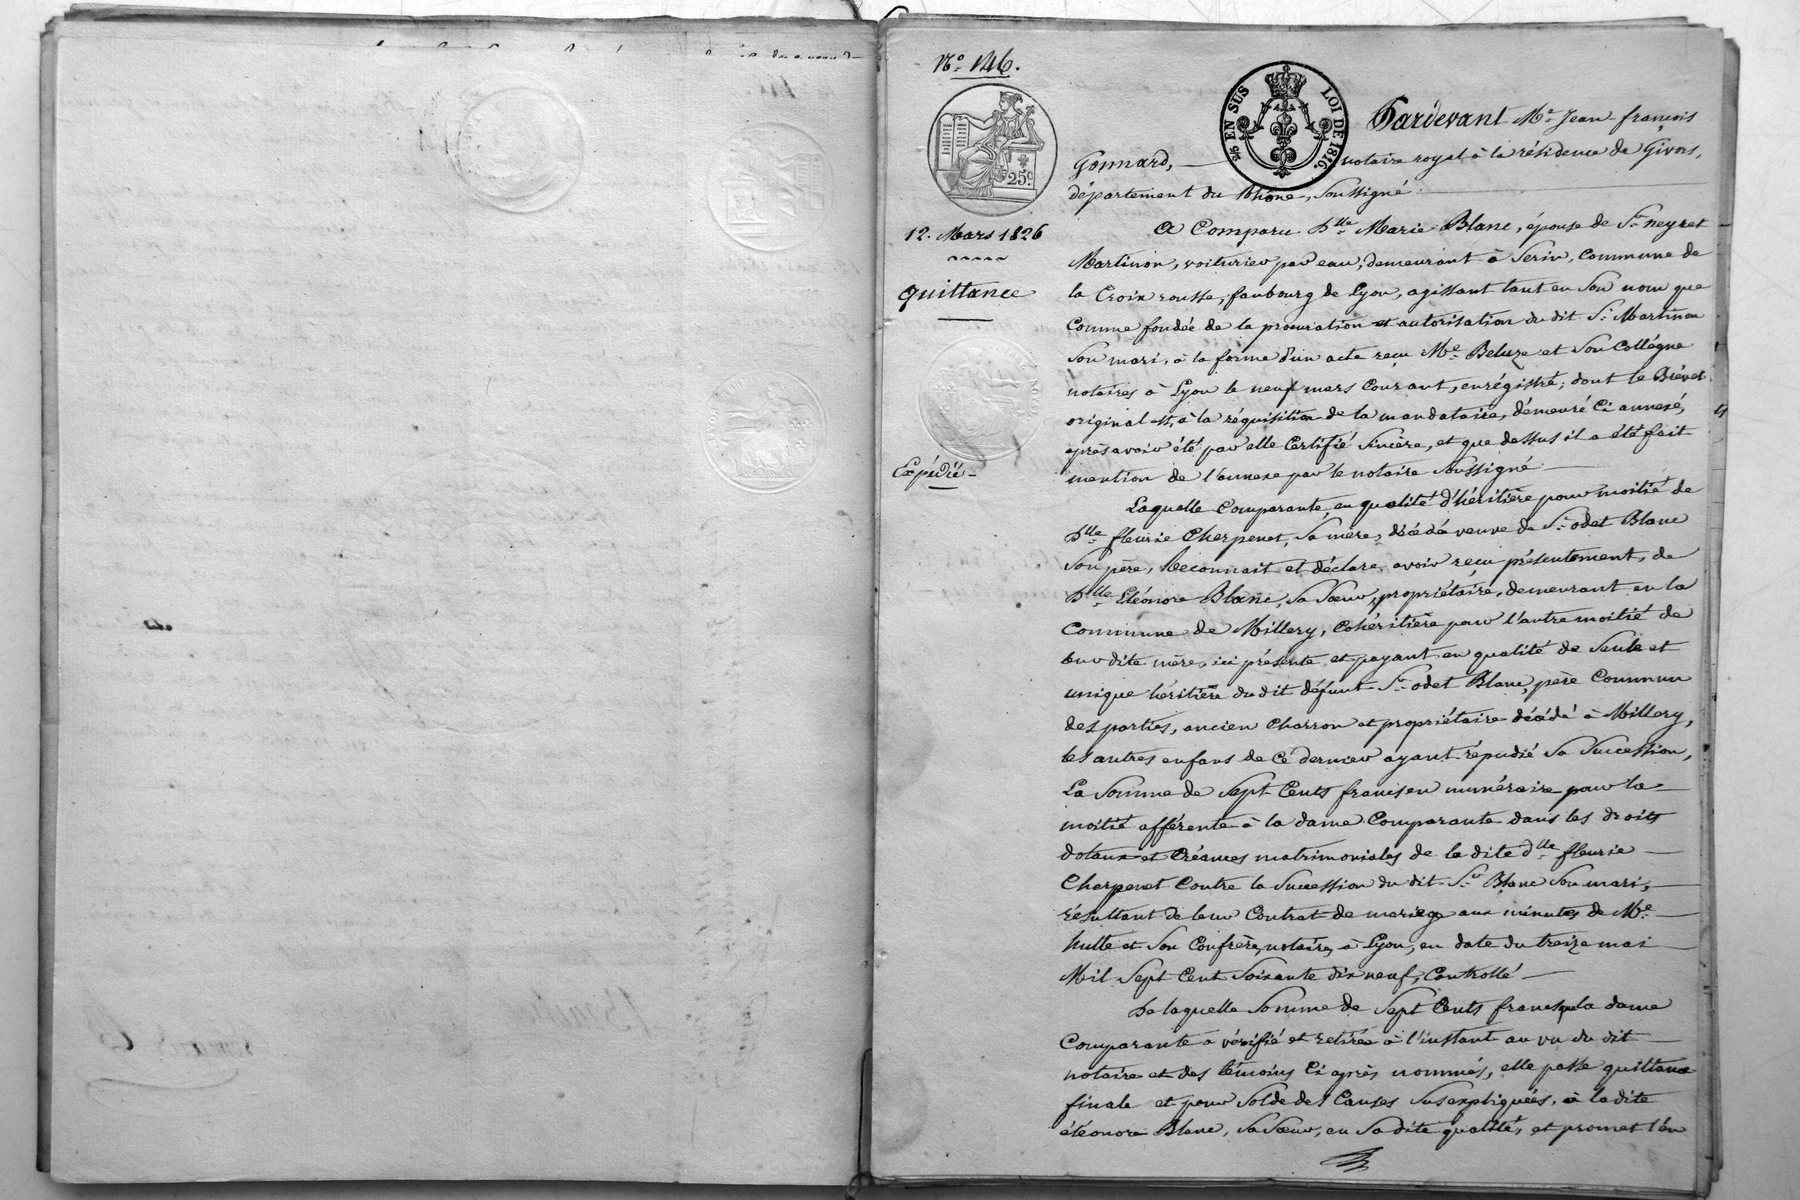 N.° 146.
25c.
2/5 EN SUS
LOI DE 1816.
12. Mars 1826
quittance
Expédié
Pardevant Me. Jean françois
Gonnard, notaire royal à la résidence de Givors,
département du Rhône, Soussigné.
A Comparu dlle. Marie Blanc, épouse de Sr. neyret
Martinon, voiturier par eau, demeurant à Serin, Commune de
la Croix rousse, faubourg de Lyon, agissant tant en Son nom que
Comme fondée de la procuration et autorisation du dit Sr. Martinon
Son mari, à la forme d'un acte reçu Me. Beluze et Son Collégue
notaires à Lyon le neuf mars Courant, enrégistré, dont le Brévet
original est, à la réquisition de la mandataire, démeuré Ci annexé,
après avoir été par elle Certifié Sincère, et que dessus il a été fait
mention de l'annexe par le notaire Soussigné.
Laquelle Comparante, en qualité d'héritière pour moitié de
dlle. fleurie Cherpenet, Sa mère, décédée veuve de Sr. odet Blanc
Son père, Reconnait et déclare avoir reçu présentement, de
dlle. Eléonore Blanc, Sa Sœur, propriétaire, demeurant en la
Commune de Millery, Cohéritière pour l'autre moitié de
leur dite mère, ici présente et payant en qualité de Seule et
unique héritière du dit défunt Sr. odet Blanc, père Commun
des parties, ancien Charron et propriétaire décédé à Millery,
les autres enfans de Ce dernier ayant répudié Sa Succession,
La Somme de Sept Cents francs en numéraire pour la
moitié afférente à la dame Comparante dans les droits
dotaux et Créances matrimoniales de la dite dlle. fleurie
Cherpenet Contre la Succession du dit Sr. Blanc Son mari,
résultant de leur Contrat de mariage aux minutes de Me.
et Son Confrère, notaires à Lyon, en date du treize mai
Mil Sept Cent Soixante dix neuf, Controllé
De laquelle Somme de Sept Cents francs que la dame
Comparante a vérifié et retirée à l'instant au vu du dit
notaire et des témoins Ci après nommés, elle passe quittance
finale et pour Solde des Causes Susexpliquées, à la dite
éléonore Blanc, Sa Sœur, en Sa dite qualité, et promet l'en